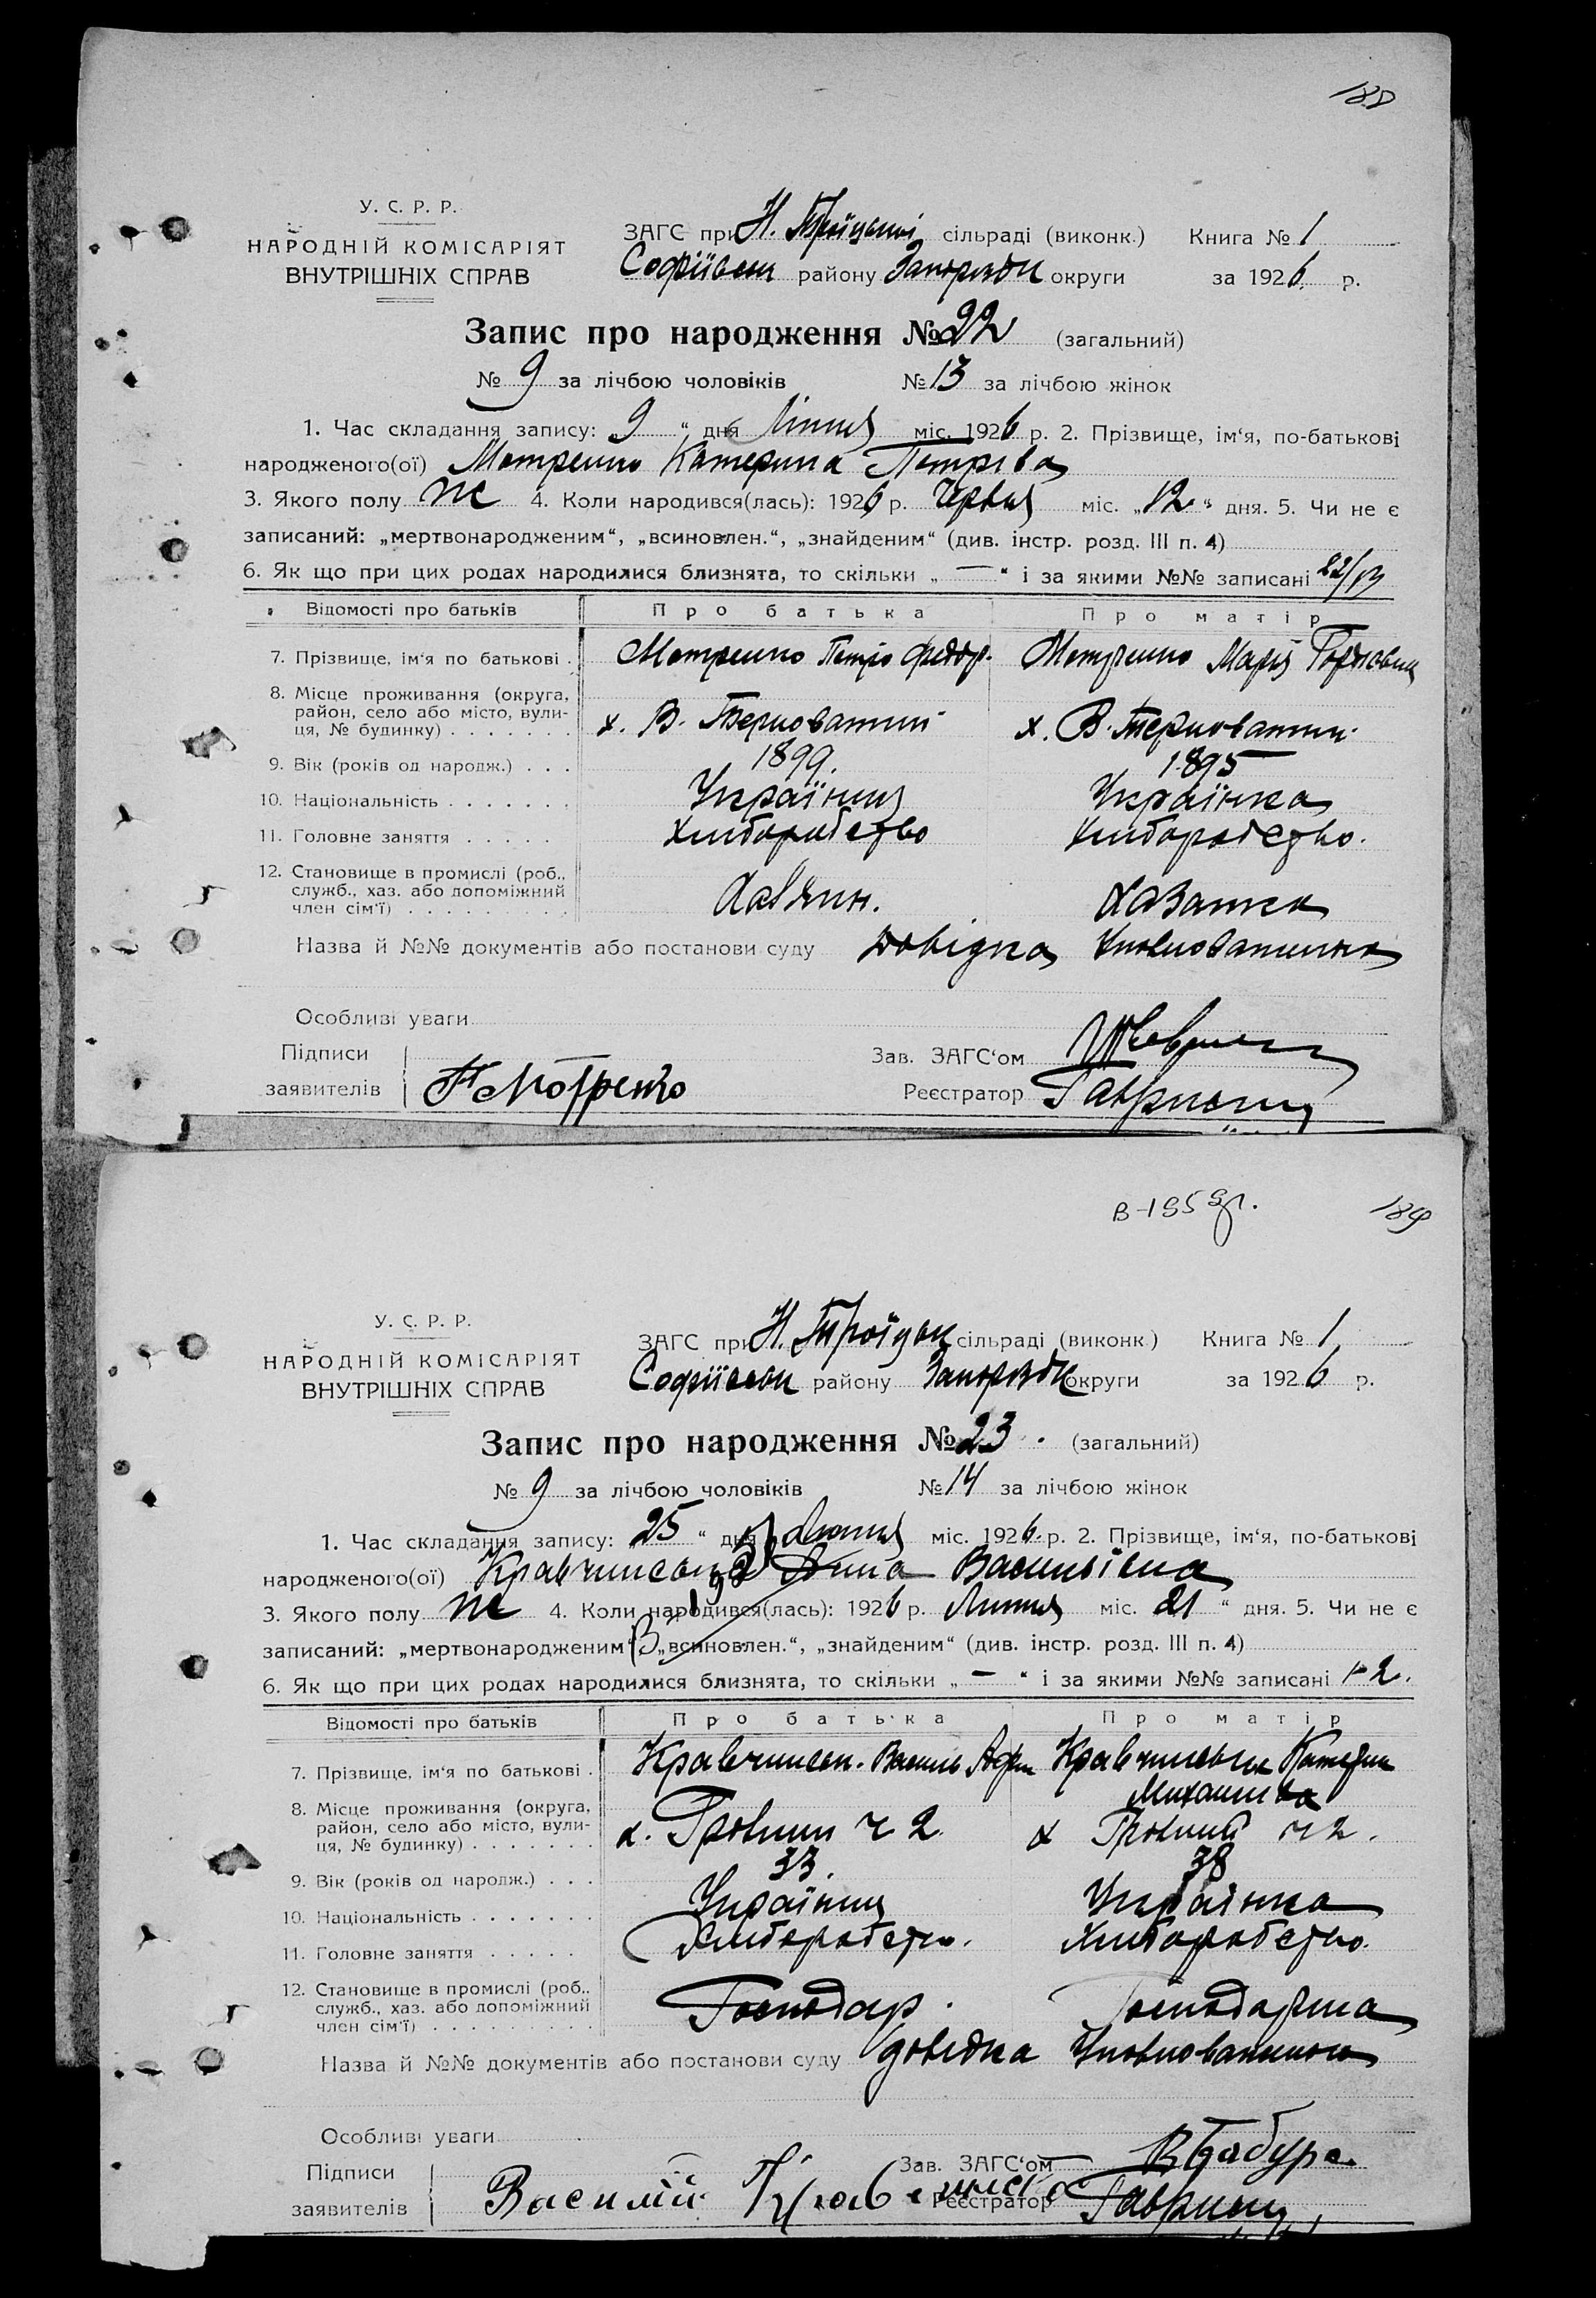 188
У. С. Р. Р.
НАРОДНІЙ КОМІСАРІЯТ
ВНУТРІШНІХ СПРАВ
ЗАГС при Н. Троїцькі сільраді (виконк.) Книга № 1
Софіївськ району Запорізьк округи за 1926 р.
Запис про народження № 22 (загальний)
№ 9 за лічбою чоловіків № 13 за лічбою жінок
1. Час складання запису: „9“ дня Липня міс. 1926 р. 2. Прізвище, ім‘я, по-батькові
народженого(ої) Мотренко Катерина Петрівa
3. Якого полу ж 4. Коли народився(лась): 1926 р. Червня міс. „12“ дня. 5. Чи не є
записаний: „мертвонародженим“, „всиновлен.“, „знайденим“ (див. інстр. розд. III п. 4)
6. Як що при цих родах народилися близнята, то скільки „—“ і за якими №№ записані 22/13
Відомості про батьків Про батька Про матір
7. Прізвище, ім‘я по батькові . Мотренко Петро Федор. Мотренко Марія
8. Місце проживання (округа,
район, село або місто, вули-
ця, № будинку) . . . . . . . х. В. Терноватий х. В. Терноватий
9. Вік (років од народж.) . . . 1899. 1895
10. Національність . . . . . . . Українця Українка
11. Головне заняття . . . . . Хліборобство Хліборобство.
12. Становище в промислі (роб.,
служб., хаз. або допоміжний
член сім‘ї) . . . . . . . . .
Назва й №№ документів або постанови суду Довідка Уповноваженого
Особливі уваги
Підписи
заявителів П Мотренко
Зав. ЗАГС‘ом
Реєстратор
В-195 189
У. С. Р. Р.
НАРОДНІЙ КОМІСАРІЯТ
ВНУТРІШНІХ СПРАВ
ЗАГС при Н. Троїцьк сільраді (виконк.) Книга № 1
Софіївськ району Запорізьк округи за 1926 р.
Запис про народження № 23. (загальний)
№ 9 за лічбою чоловіків № 14 за лічбою жінок
1. Час складання запису: „25“ дня міс. 1926 р. 2. Прізвище, ім‘я, по-батькові
народженого(ої) Кравчинська Анна Василівна
3. Якого полу ж 4. Коли народився(лась): 1926 р. Липня міс. 21“ дня. 5. Чи не є
записаний: „мертвонародженим“, „всиновлен.“, „знайденим“ (див. інстр. розд. III п. 4)
6. Як що при цих родах народилися близнята, то скільки „—“ і за якими №№ записані
Відомості про батьків Про батька Про матір
7. Прізвище, ім‘я по батькові . Кравчинськ. Василь Кравчинська Катерин
Михайлівa
8. Місце проживання (округа,
район, село або місто, вули-
ця, № будинку) . . . . . . . х. ч 2. х ч 2.
9. Вік (років од народж.) . . . 33. 38
10. Національність . . . . . . . Українця Українка
11. Головне заняття . . . . . Хліборобство. Хліборобство.
12. Становище в промислі (роб.,
служб., хаз. або допоміжний
член сім‘ї) . . . . . . . . . Господар. Господарка
Назва й №№ документів або постанови суду довідка Уповноваженого
Особливі уваги
Підписи
заявителів Василій
Зав. ЗАГС‘ом
Реєстратор